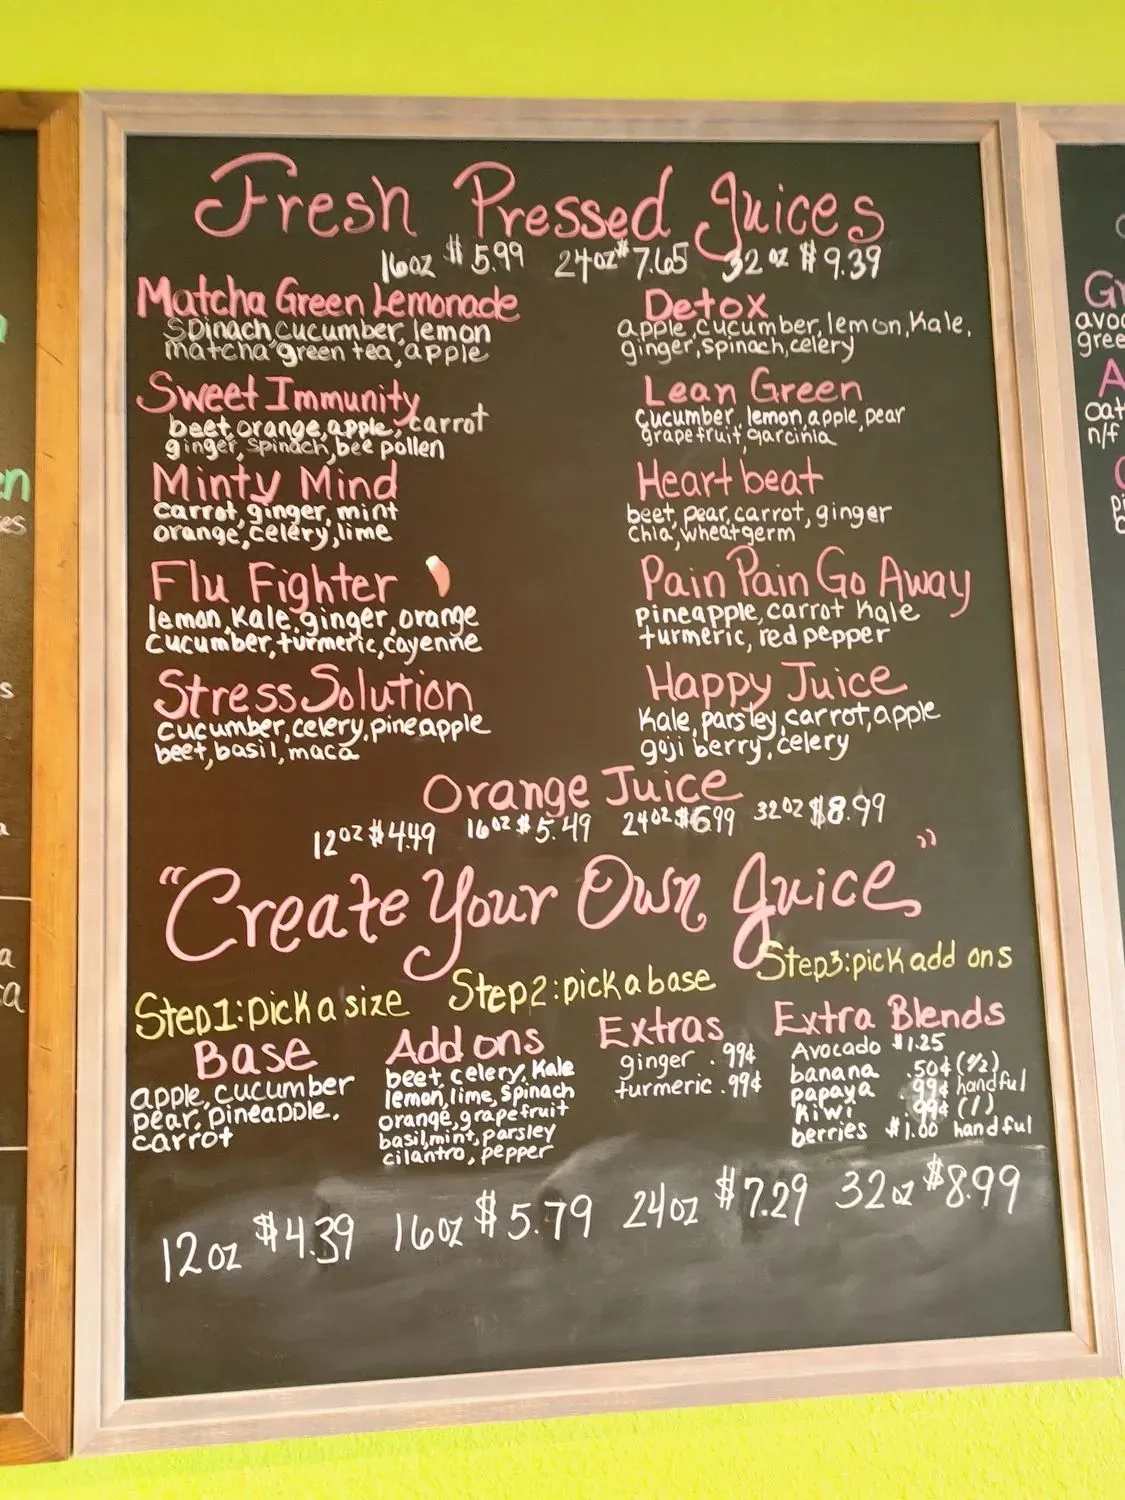 Fresh Pressed Juices
16oz $5.99 24oz $7.65 32oz $9.39
Matcha Green Lemonade
Spinach, cucumber, lemon
matcha green tea, apple
Sweet Immunity
beet, orange, apple, carrot
ginger, spinach, bee pollen
Minty Mind
carrot, ginger, mint
orange, celery, lime
Flu Fighter
lemon, kale, ginger, orange
cucumber, turmeric, cayenne
Stress Solution
cucumber, celery, pineapple
beet, basil, maca
Detox
apple, cucumber, lemon, kale,
ginger, spinach, celery
Lean Green
cucumber, lemon, apple, pear
grapefruit, garcinia
Heart beat
beet, pear, carrot, ginger
chia, wheatgerm
Pain Pain Go Away
pineapple, carrot kale
turmeric, red pepper
Happy Juice
kale, parsley, carrot, apple
goji berry, celery
Orange Juice
12oz $4.49 16oz $5.49 24oz $6.99 32oz $8.99
"Create Your Own Juice"
Step1: pick a size Step2: pick a base Step3: pick add ons
Base
apple, cucumber
pear, pineapple,
carrot
Add ons
beet, celery, kale
lemon, lime, spinach
orange, grapefruit
basil, mint, parsley
cilantro, pepper
Extras
ginger .99¢
turmeric .99¢
Extra Blends
Avocado $1.25
banana .50¢ (1/2)
papaya .99¢ handful
kiwi .99¢ (1)
berries $1.00 handful
12oz $4.39 16oz $5.79 24oz $7.29 32oz $8.99